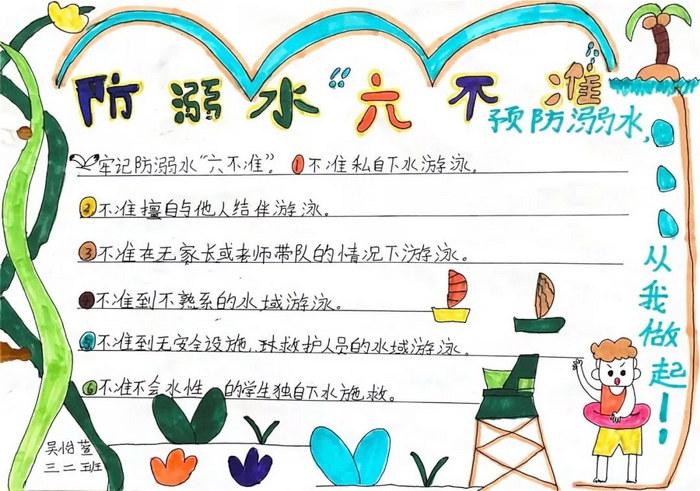 防溺水“六不准
预防溺水,
从我做起!!
牢记防溺水“六不准”。①不准私自下水游泳。
②不准擅自与他人结伴游泳。
③不准在无家长或老师带队的情况下游泳。
④不准到不熟系的水域游泳。
⑤不准到无安全设施,球救护人员的水域游泳。
⑥不准不会水性 的学生独自下水施救。
吴怡萱
三二班